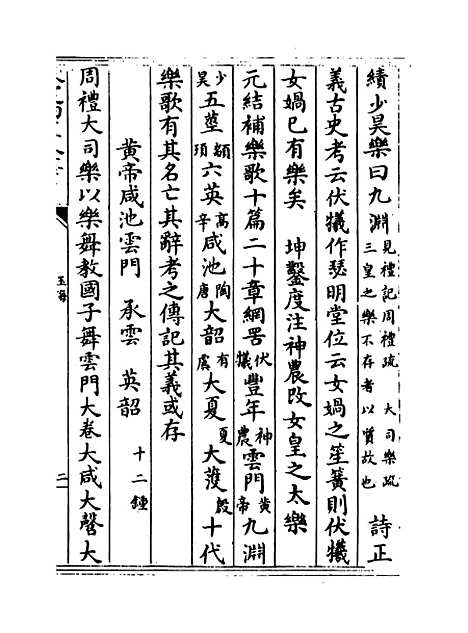 績少昊樂曰九淵見禮記周禮疏 大司樂疏三皇之樂不存者以質故也 詩正
義古史考云伏犧作瑟明堂位云女媧之笙簧則伏犧
女媧已有樂矣 坤鑿度注神農改女皇之太樂
元結補樂歌十篇二十章網罟伏犧豐年神農雲門黃帝九淵
少昊五莖顓頊六英高辛咸池陶唐大韶有虞大夏夏大濩殷十代
樂歌有其名亡其辭考之傳記其義或存
黃帝咸池雲門 承雲 英韶 十二鍾
周禮大司樂以樂舞教國子舞雲門大卷大咸大磬大
玉海 二